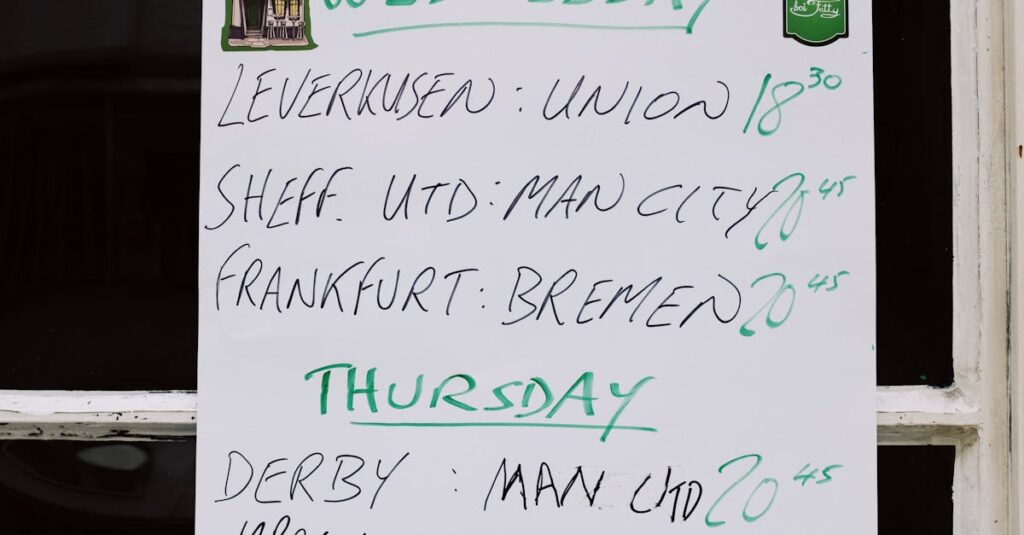 bei Fatty
LEVERKUSEN : UNION 18 30
SHEFF. UTD : MAN CITY 20 45
FRANKFURT : BREMEN 20 45
THURSDAY
DERBY : MAN UTD 20 45